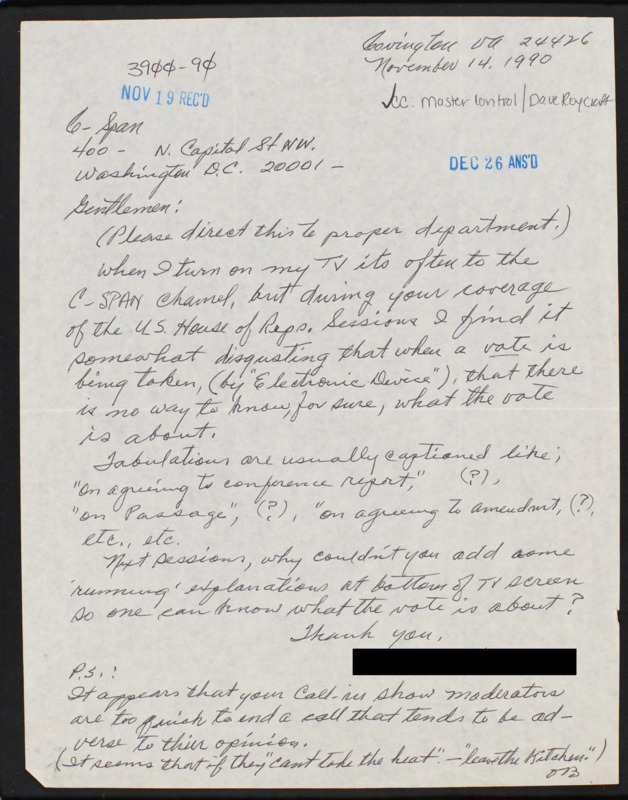 Covington VA 24426
November 14. 1990
39ØØ-9Ø
NOV 19 REC'D
cc: Master Control / Dave Roycraft
C-Span
400 - N. Capital St NW.
Washington D.C. 20001 -
DEC 26 ANS'D
Gentlemen:
(Please direct this to proper department.)
When I turn on my TV its often to the
C-SPAN channel, but during your coverage
of the U.S. House of Reps. Sessions I find it
somewhat disgusting that when a vote is
being taken, (by "Electronic Device"), that there
is no way to know, for sure, what the vote
is about.
Tabulations are usually captioned like;
"on agreeing to conference report," (?),
"on Passage", (?), "on agreeing to amendmnt, (?),
etc., etc.
Next sessions, why couldn't you add some
'running' explanations at bottom of TV screen
so one can know what the vote is about?
Thank you,
P.S.:
It appears that your Call-in show moderators
are too quick to end a call that tends to be ad-
verse to their opinion.
(It seems that if they "cant take the heat" - "leave the Kitchen.")